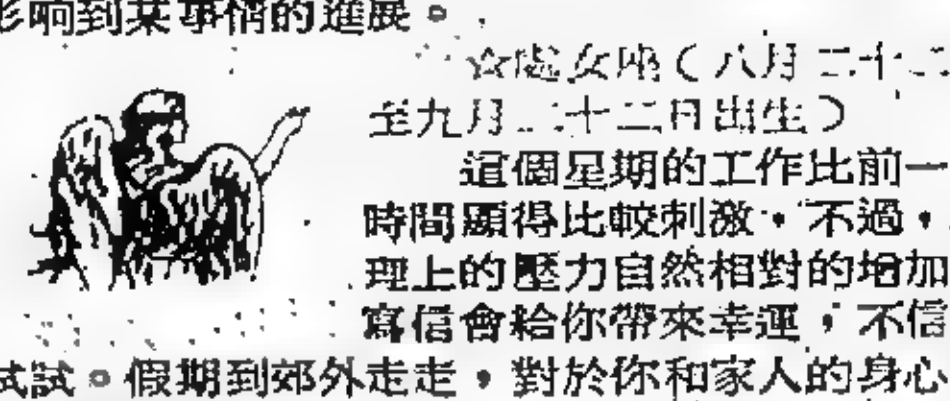 影响到某事情的進展。
☆處女座(八月二十二
至九月二十二日出生)
這個星期的工作比前一
時間顯得比較刺激,不過,
理上的壓力自然相對的增加
寫信會給你帶來幸運,不信
試試。假期到郊外走走,對於你和家人的身心